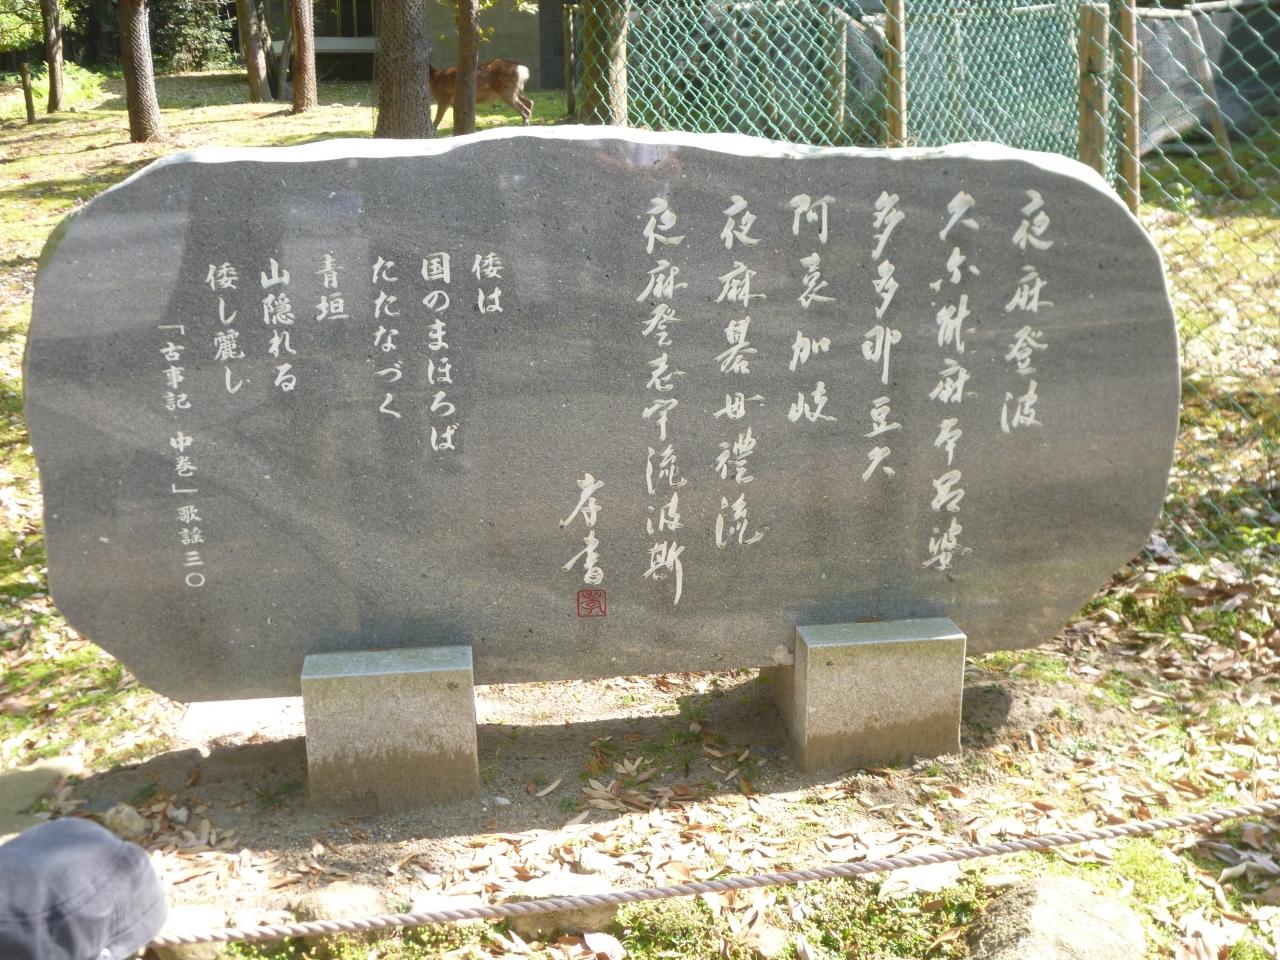 夜麻登波
久尓能麻本呂婆
多多那豆久
阿袁加岐
夜麻碁母禮流
夜麻登志宇流波斯
孝書
孝
倭は
国のまほろば
たたなづく
青垣
山隠れる
倭し麗し
「古事記 中巻」歌謡三〇